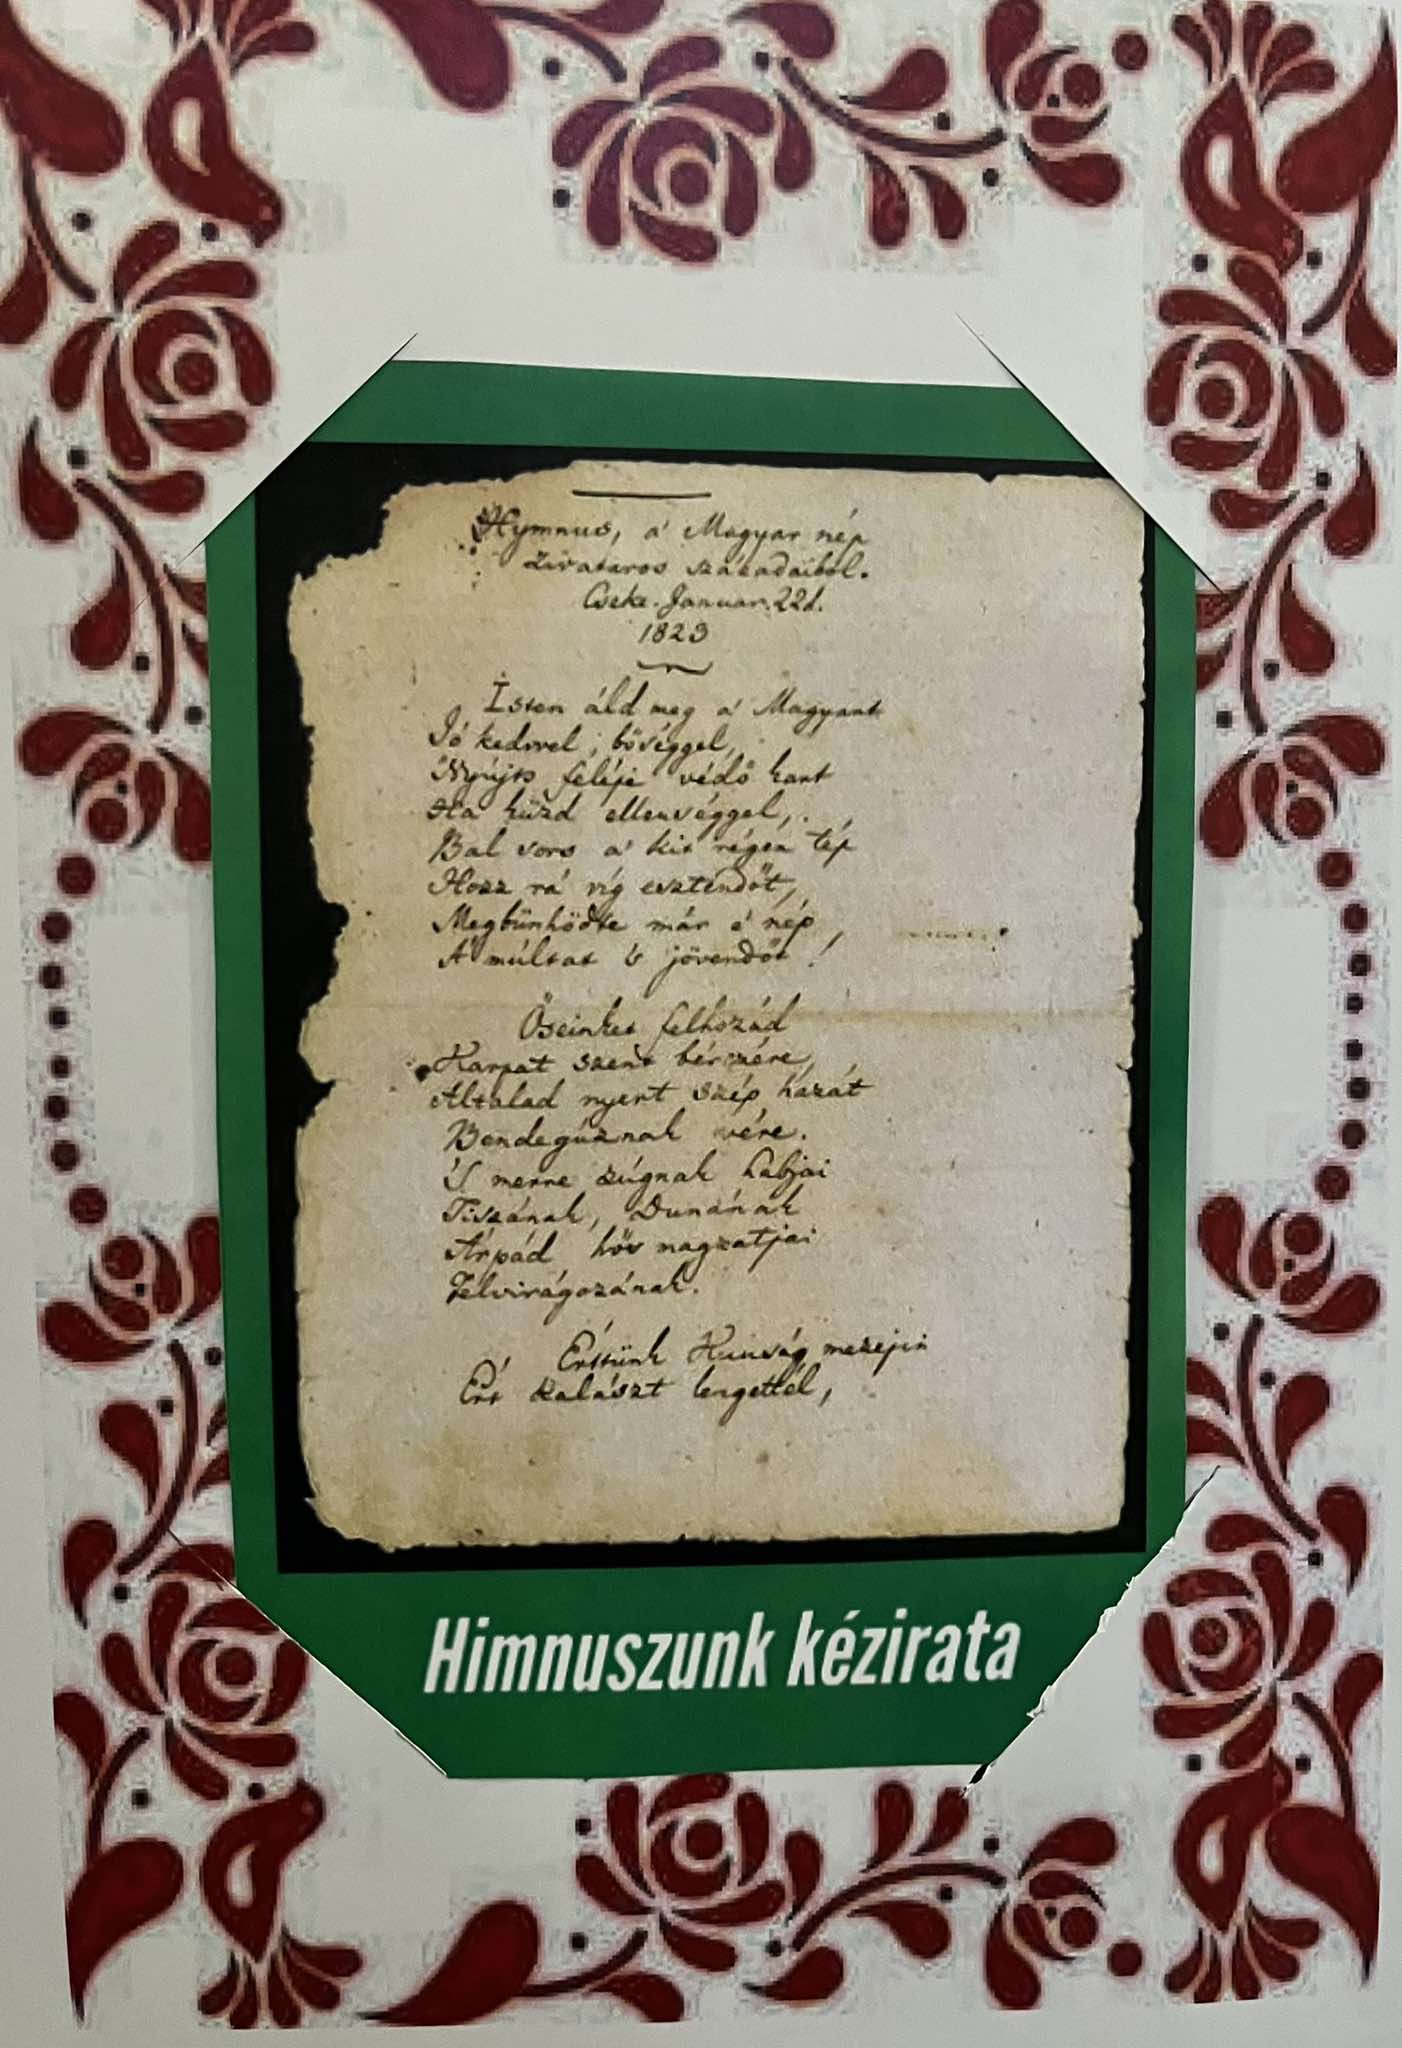 Hymnus, a' Magyar nép
zivataros századaiból.
Cseke. Januar. 22d.
1823
Isten áld meg a' Magyart
Jó kedvvel, bőséggel,
Nyújts feléje védő kart
Ha küzd ellenséggel,
Bal sors a' kit régen tép
Hozz rá víg esztendőt,
Megbűnhődte már e' nép
A' múltat 's jövendőt!
Őseinket felhozád
Karpat szent bérczére,
Általad nyert szép hazát
Bendegúznak vére.
'S merre zúgnak habjai
Tiszának, Dunának
Árpád hős magzatjai
Felvirágozának.
Értünk Kunság mezejin
Ért kalászt lengettél,
Himnuszunk kézirata